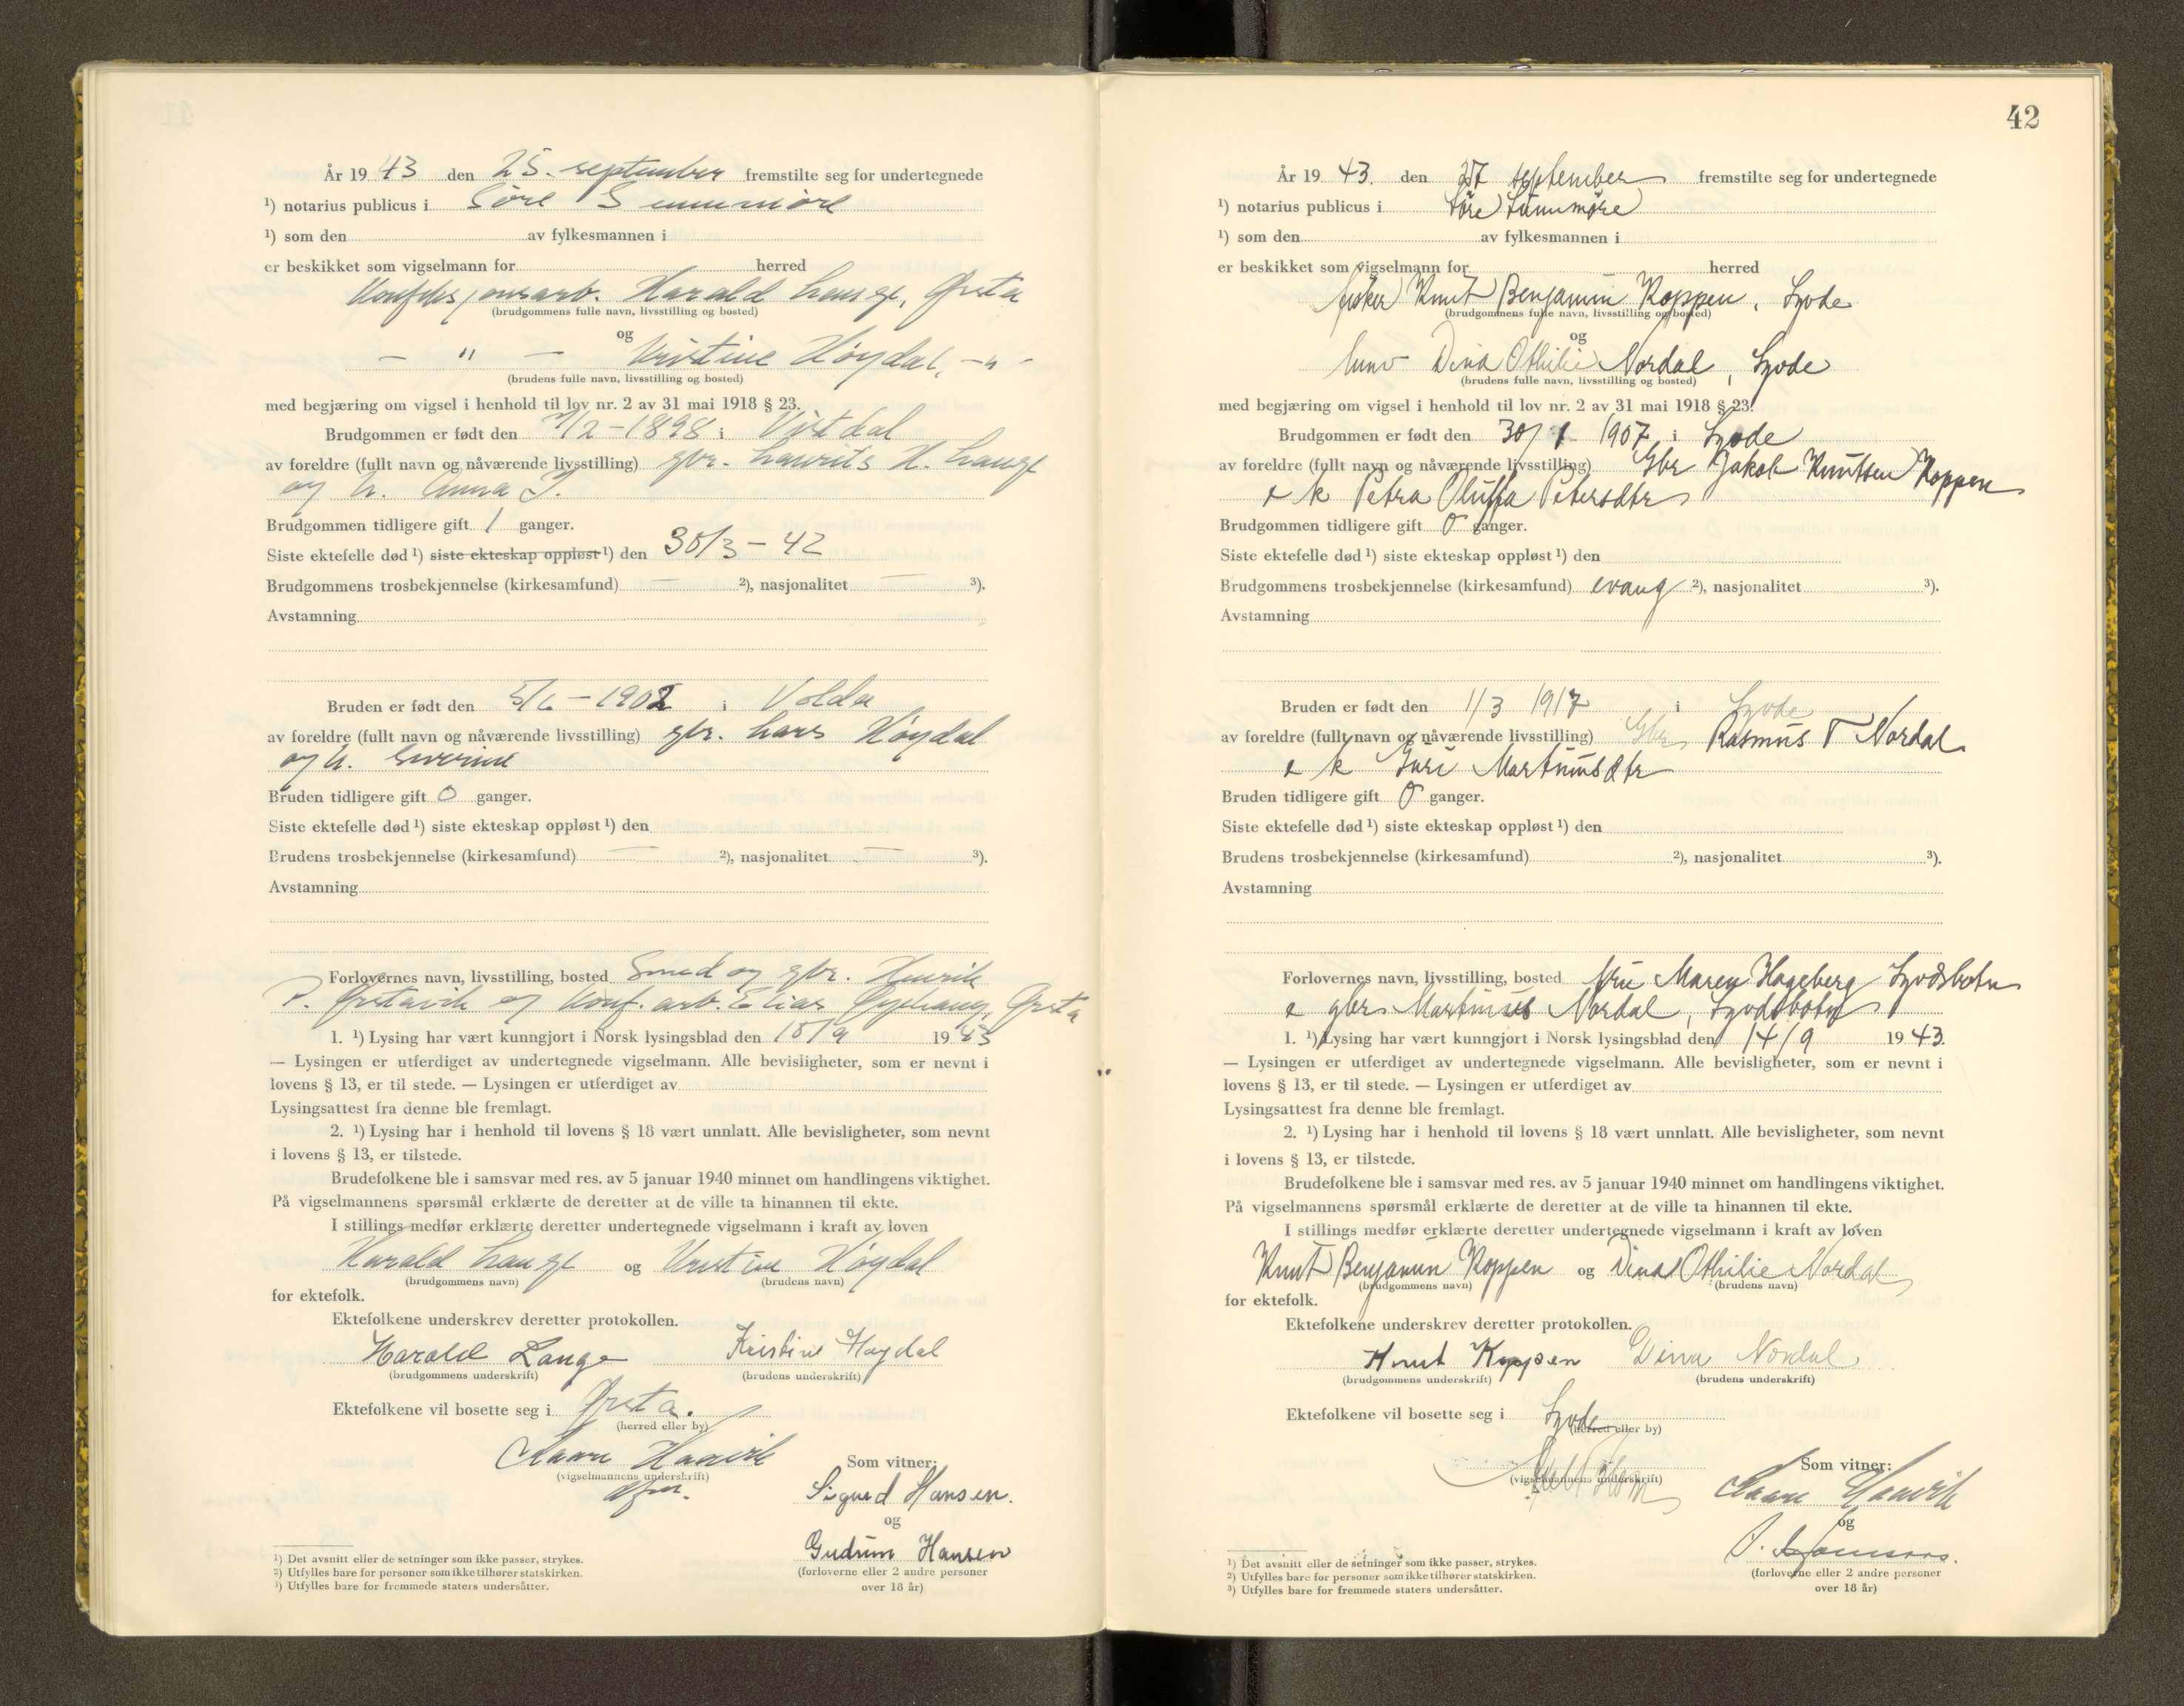 År 19 43 den 25. september fremstilte seg for undertegnede
¹) notarius publicus i Söre Sunnmöre
¹) som den av fylkesmannen i
er beskikket som vigselmann for herred
Konfeksjonsarb. Harald Lange, Ørsta
(brudgommens fulle navn, livsstilling og bosted)
og
— " — Kristine Høydal, — " —
(brudens fulle navn, livsstilling og bosted)
med begjæring om vigsel i henhold til lov nr. 2 av 31 mai 1918 § 23.
Brudgommen er født den /2 - 1898 i
av foreldre (fullt navn og nåværende livsstilling) gbr. Laurits K. Lange
og h. Anna J.
Brudgommen tidligere gift 1 ganger.
Siste ektefelle død ¹) siste ekteskap oppløst ¹) den 30/3 - 42
Brudgommens trosbekjennelse (kirkesamfund) — ²), nasjonalitet — ³).
Avstamning
Bruden er født den 5/6 - 1902 i Volda
av foreldre (fullt navn og nåværende livsstilling) gbr. Lars Høydal
og h. Severine
Bruden tidligere gift 0 ganger.
Siste ektefelle død ¹) siste ekteskap oppløst ¹) den
Brudens trosbekjennelse (kirkesamfund) — ²), nasjonalitet — ³).
Avstamning
Forlovernes navn, livsstilling, bosted Smed og gbr. Henrik
P. Ørstavik og Konf. arb. Elias Ørsta
1. ¹) Lysing har vært kunngjort i Norsk lysingsblad den 18/9 19 43
— Lysingen er utferdiget av undertegnede vigselmann. Alle bevisligheter, som er nevnt i
lovens § 13, er til stede. — Lysingen er utferdiget av
Lysingsattest fra denne ble fremlagt.
2. ¹) Lysing har i henhold til lovens § 18 vært unnlatt. Alle bevisligheter, som nevnt
i lovens § 13, er tilstede.
Brudefolkene ble i samsvar med res. av 5 januar 1940 minnet om handlingens viktighet.
På vigselmannens spørsmål erklærte de deretter at de ville ta hinannen til ekte.
I stillings medfør erklærte deretter undertegnede vigselmann i kraft av loven
Harald Lange og Kristine Høydal
(brudgommens navn) (brudens navn)
for ektefolk.
Ektefolkene underskrev deretter protokollen.
Harald Lange Kristine Høydal
(brudgommens underskrift) (brudens underskrift)
Ektefolkene vil bosette seg i Ørsta.
(herred eller by)
Haavik
(vigselmannens underskrift)
Som vitner:
Sigurd Hansen.
og
Gudrun Hansen
(forloverne eller 2 andre personer
over 18 år)
¹) Det avsnitt eller de setninger som ikke passer, strykes.
²) Utfylles bare for personer som ikke tilhører statskirken.
³) Utfylles bare for fremmede staters undersåtter.
42
År 19 43. den 27 september fremstilte seg for undertegnede
¹) notarius publicus i Söre Sunnmøre
¹) som den av fylkesmannen i
er beskikket som vigselmann for herred
fisker Knut Benjamin Koppen, Syvde
(brudgommens fulle navn, livsstilling og bosted)
og
Dina Othilie Nordal, Syvde
(brudens fulle navn, livsstilling og bosted)
med begjæring om vigsel i henhold til lov nr. 2 av 31 mai 1918 § 23.
Brudgommen er født den 30/1 1907 i Syvde
av foreldre (fullt navn og nåværende livsstilling) Gbr Jakob Knutsen Koppen
& k Petra Oluffa Petersdtr
Brudgommen tidligere gift 0 ganger.
Siste ektefelle død ¹) siste ekteskap oppløst ¹) den
Brudgommens trosbekjennelse (kirkesamfund) evang ²), nasjonalitet ³).
Avstamning
Bruden er født den 1/3 1917 i Syvde
av foreldre (fullt navn og nåværende livsstilling) Gbr Rasmus T Nordal
& k Guri Martinusdtr
Bruden tidligere gift 0 ganger.
Siste ektefelle død ¹) siste ekteskap oppløst ¹) den
Brudens trosbekjennelse (kirkesamfund) ²), nasjonalitet ³).
Avstamning
Forlovernes navn, livsstilling, bosted Fru Maren Hageberg Syvdsbotn
& gbr Martinus Nordal, Syvdsbotn
1. ¹) Lysing har vært kunngjort i Norsk lysingsblad den 14/9 19 43.
— Lysingen er utferdiget av undertegnede vigselmann. Alle bevisligheter, som er nevnt i
lovens § 13, er til stede. — Lysingen er utferdiget av
Lysingsattest fra denne ble fremlagt.
2. ¹) Lysing har i henhold til lovens § 18 vært unnlatt. Alle bevisligheter, som nevnt
i lovens § 13, er tilstede.
Brudefolkene ble i samsvar med res. av 5 januar 1940 minnet om handlingens viktighet.
På vigselmannens spørsmål erklærte de deretter at de ville ta hinannen til ekte.
I stillings medfør erklærte deretter undertegnede vigselmann i kraft av loven
Knut Benjamin Koppen og Dina Othilie Nordal
(brudgommens navn) (brudens navn)
for ektefolk.
Ektefolkene underskrev deretter protokollen.
Knut Koppen Dina Nordal
(brudgommens underskrift) (brudens underskrift)
Ektefolkene vil bosette seg i Syvde
(herred eller by)
(vigselmannens underskrift)
Som vitner:
Haavik
og
(forloverne eller 2 andre personer
over 18 år)
¹) Det avsnitt eller de setninger som ikke passer, strykes.
²) Utfylles bare for personer som ikke tilhører statskirken.
³) Utfylles bare for fremmede staters undersåtter.